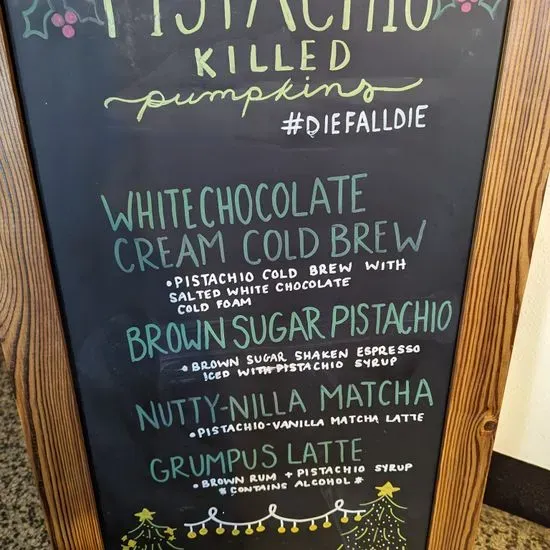 PISTACHIO
KILLED
pumpkins
#DIEFALLDIE
WHITE CHOCOLATE
CREAM COLD BREW
•PISTACHIO COLD BREW WITH
SALTED WHITE CHOCOLATE
COLD FOAM
BROWN SUGAR PISTACHIO
•BROWN SUGAR SHAKEN ESPRESSO
ICED WITH PISTACHIO SYRUP
NUTTY-NILLA MATCHA
•PISTACHIO-VANILLA MATCHA LATTE
GRUMPUS LATTE
•BROWN RUM + PISTACHIO SYRUP
*CONTAINS ALCOHOL*